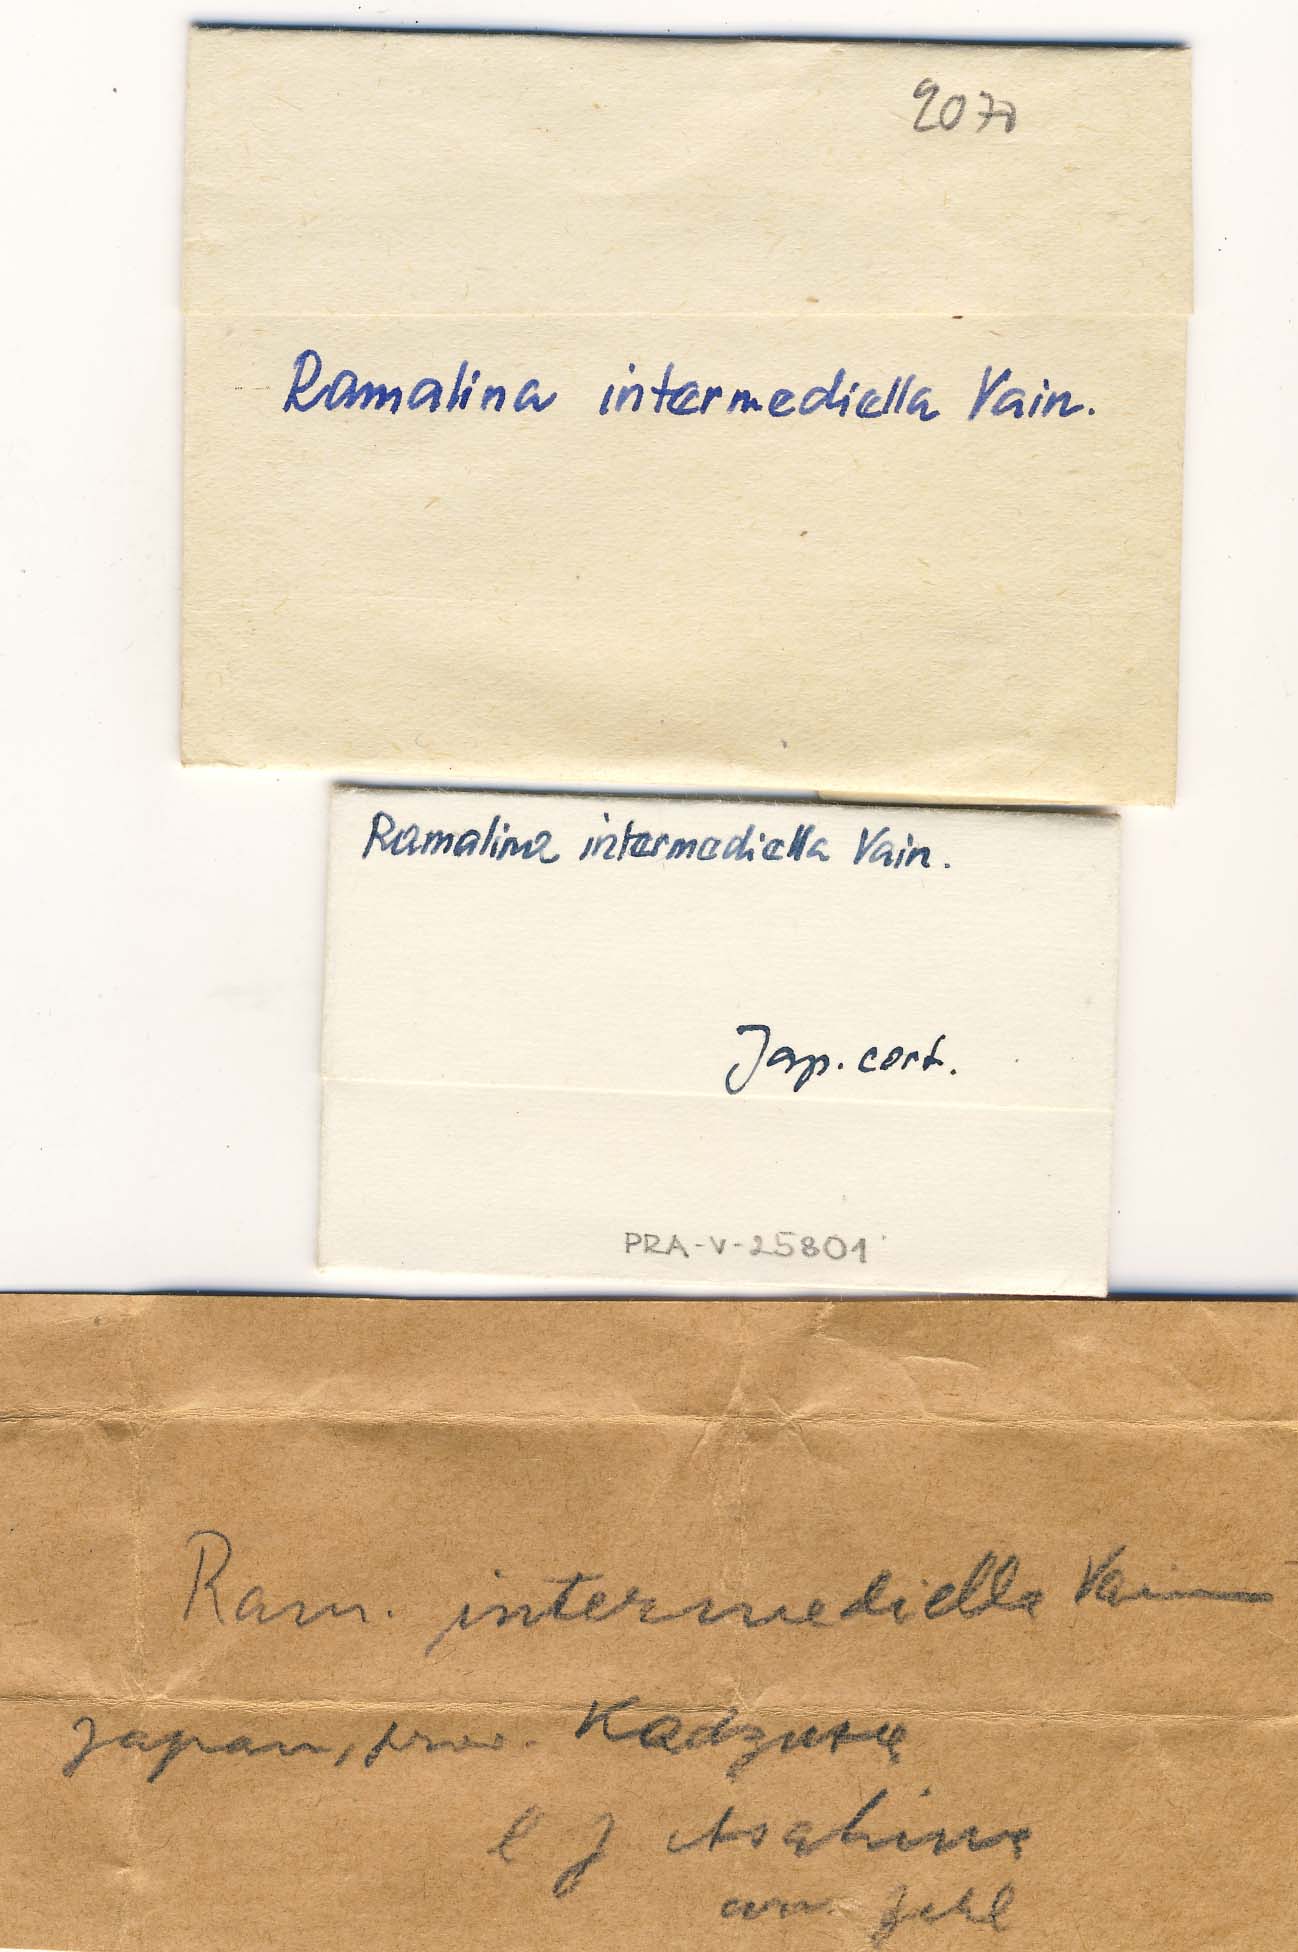 2070
Ramalina intermediella Vain.
Ramalina intermediella Vain.
Jap. cort.
PRA-V-25801
Ram. intermediella Vain
Japan, prov. Kadzusa
l Asahina